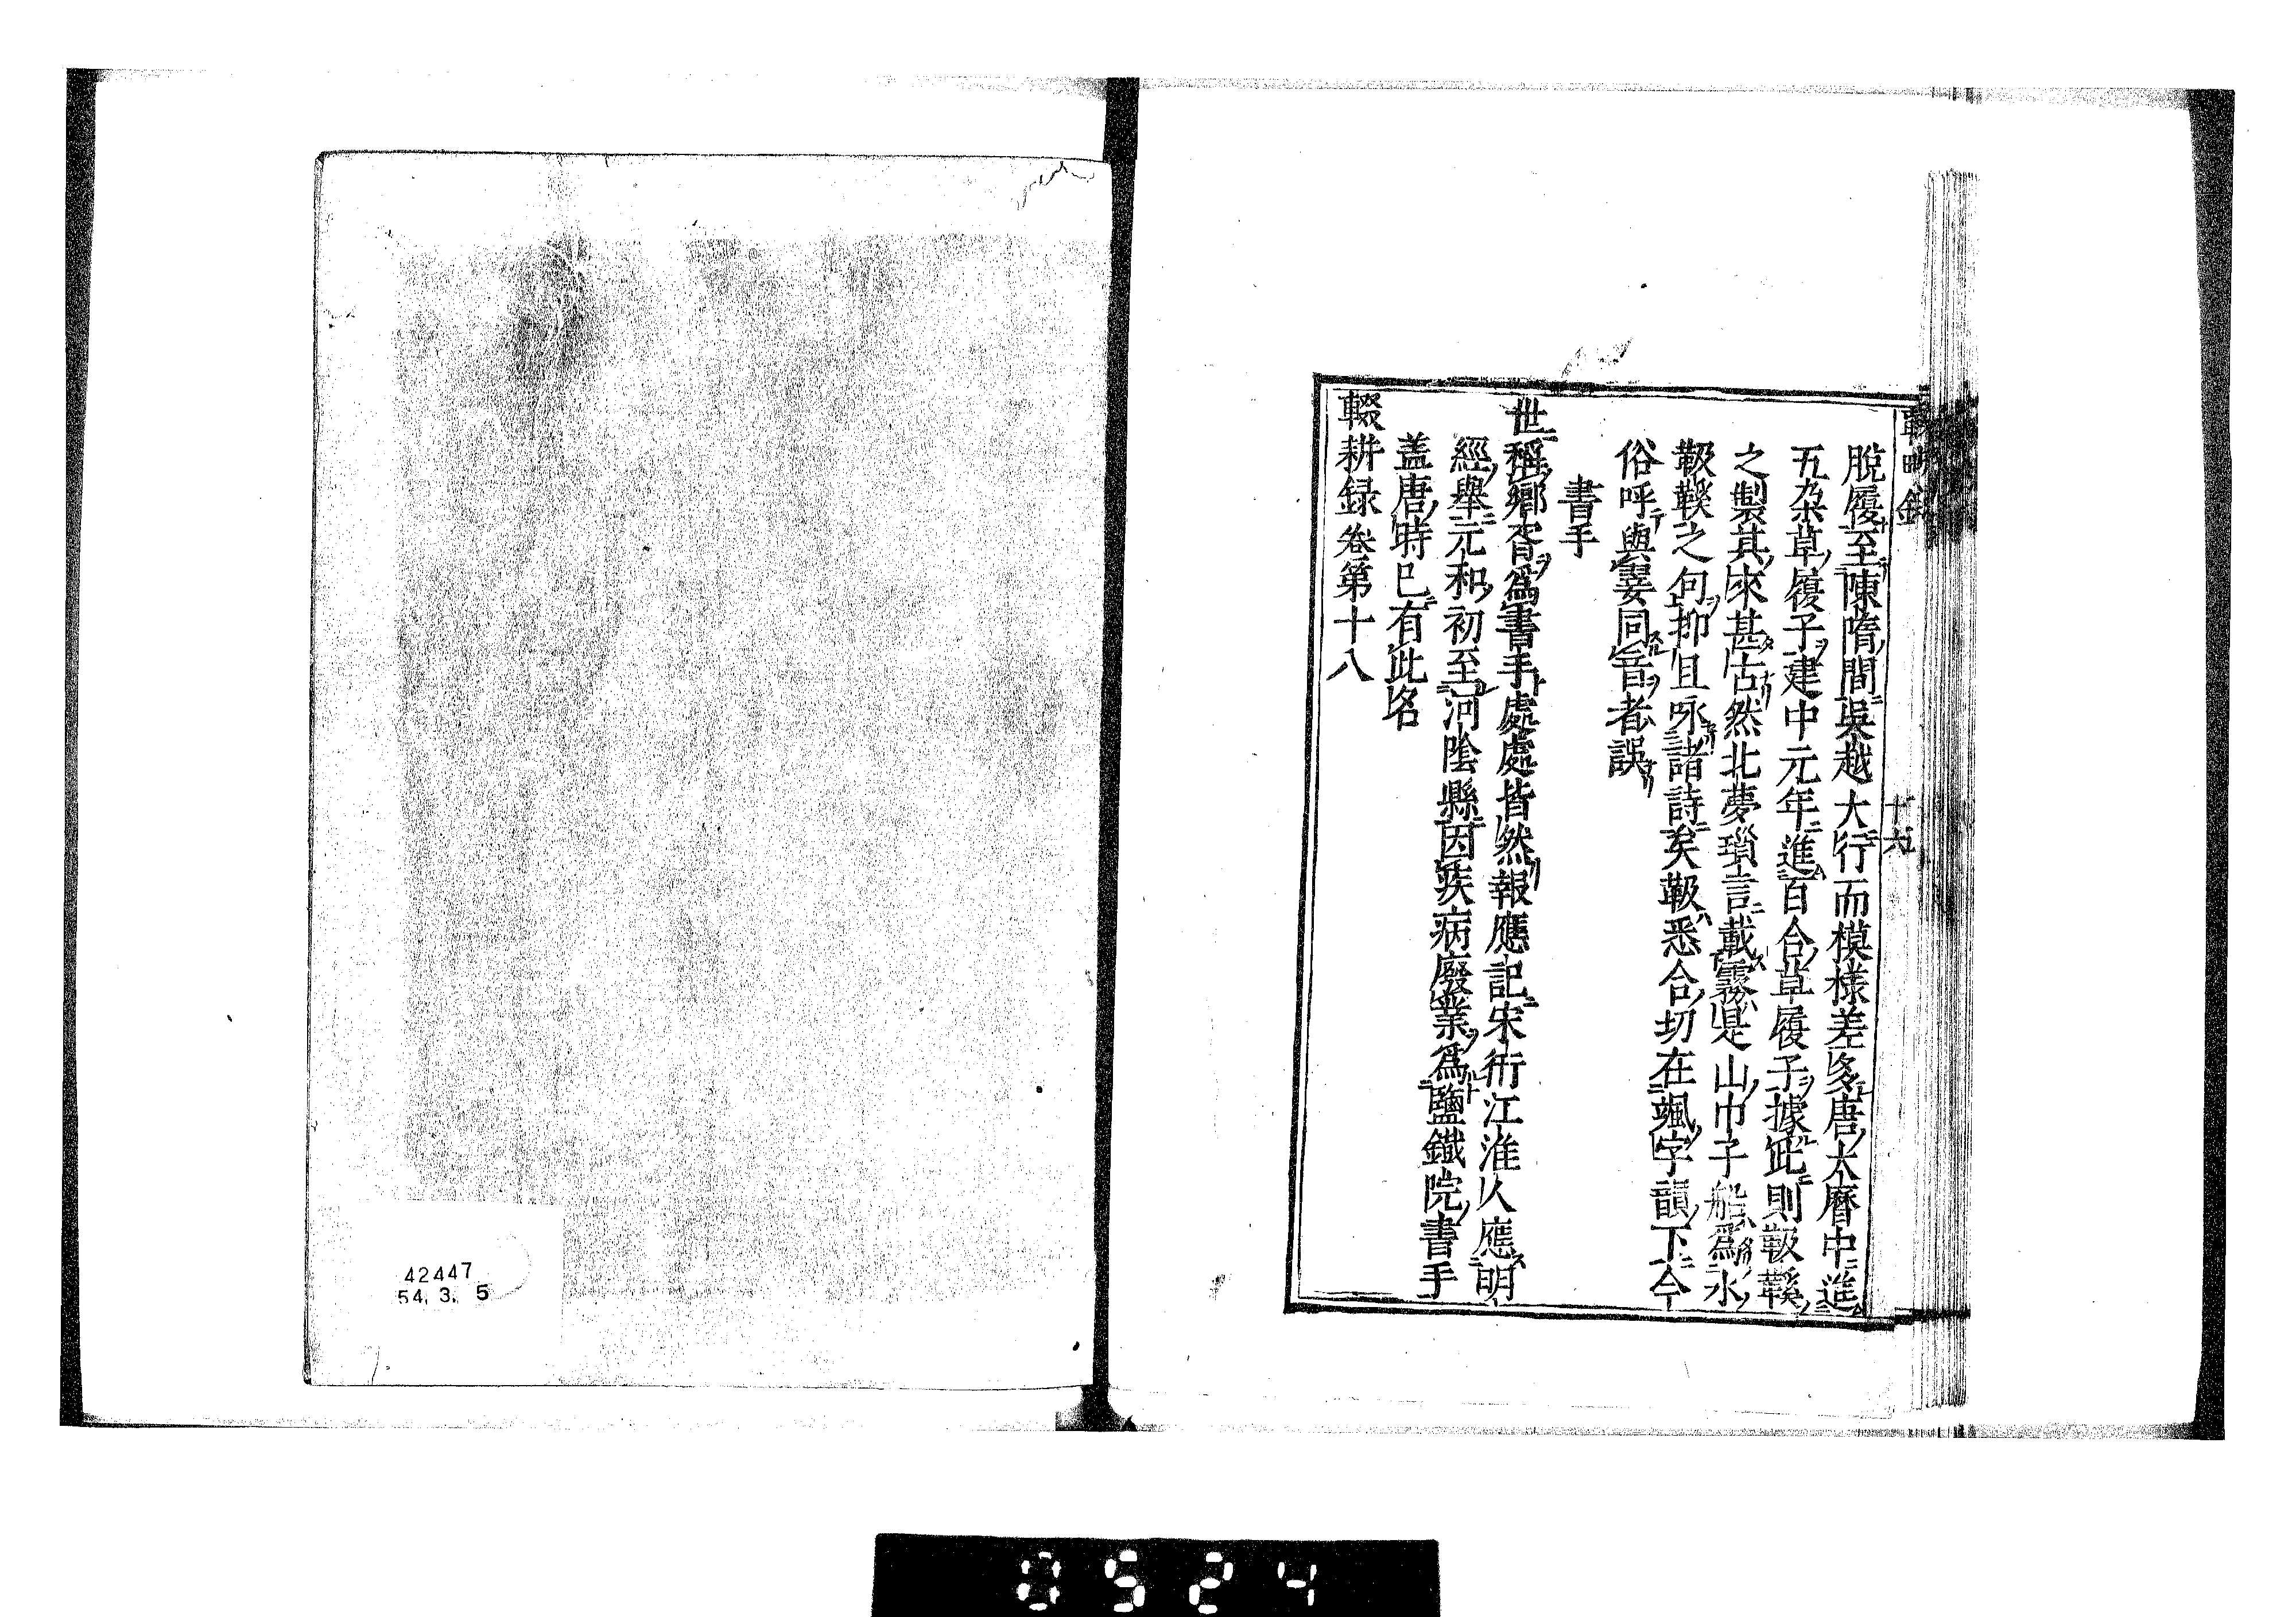 脫履至陳隋間吳越大行而模樣差多唐大曆中進
五朶草履子建中元年進百合草履子據此則靸鞵
之製其來甚古然北夢瑣言載霧是山巾子船爲水
靸鞵之句抑且咏諸詩矣靸悉合切在颯字韻下今
俗呼與翣同音者誤
書手
世稱鄉胥爲書手處處皆然報應記宋衎江淮人應明
經舉元和初至河陰縣因疾病廢業爲鹽鐵院書手
盖唐時已有此名
輟耕録卷第十八
42447
54. 3. 5
0524